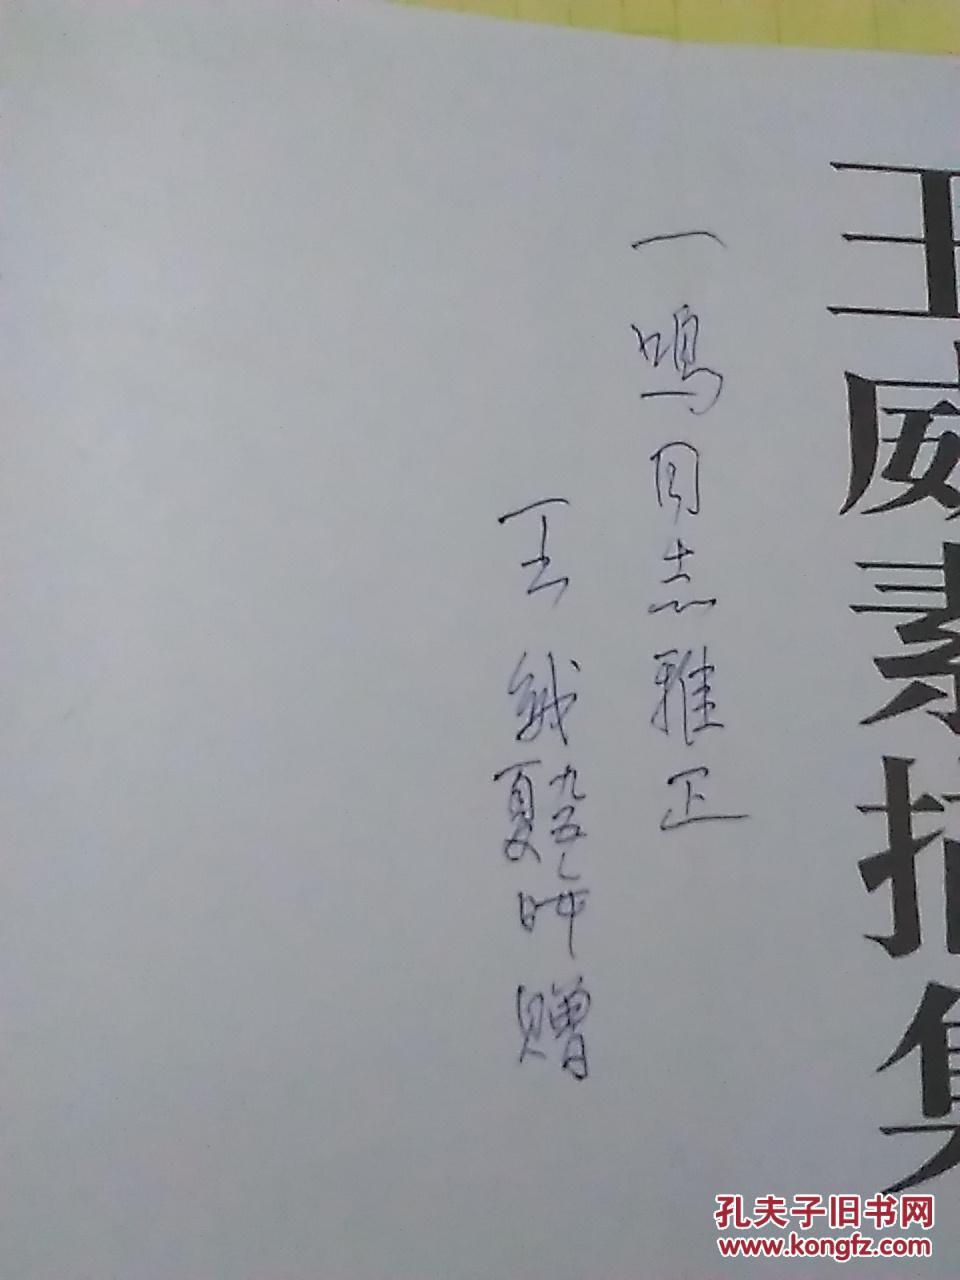 王威素描集
一鸣同志雅正
王威
九五年
夏日
赠
孔夫子旧书网
www.kongfz.com